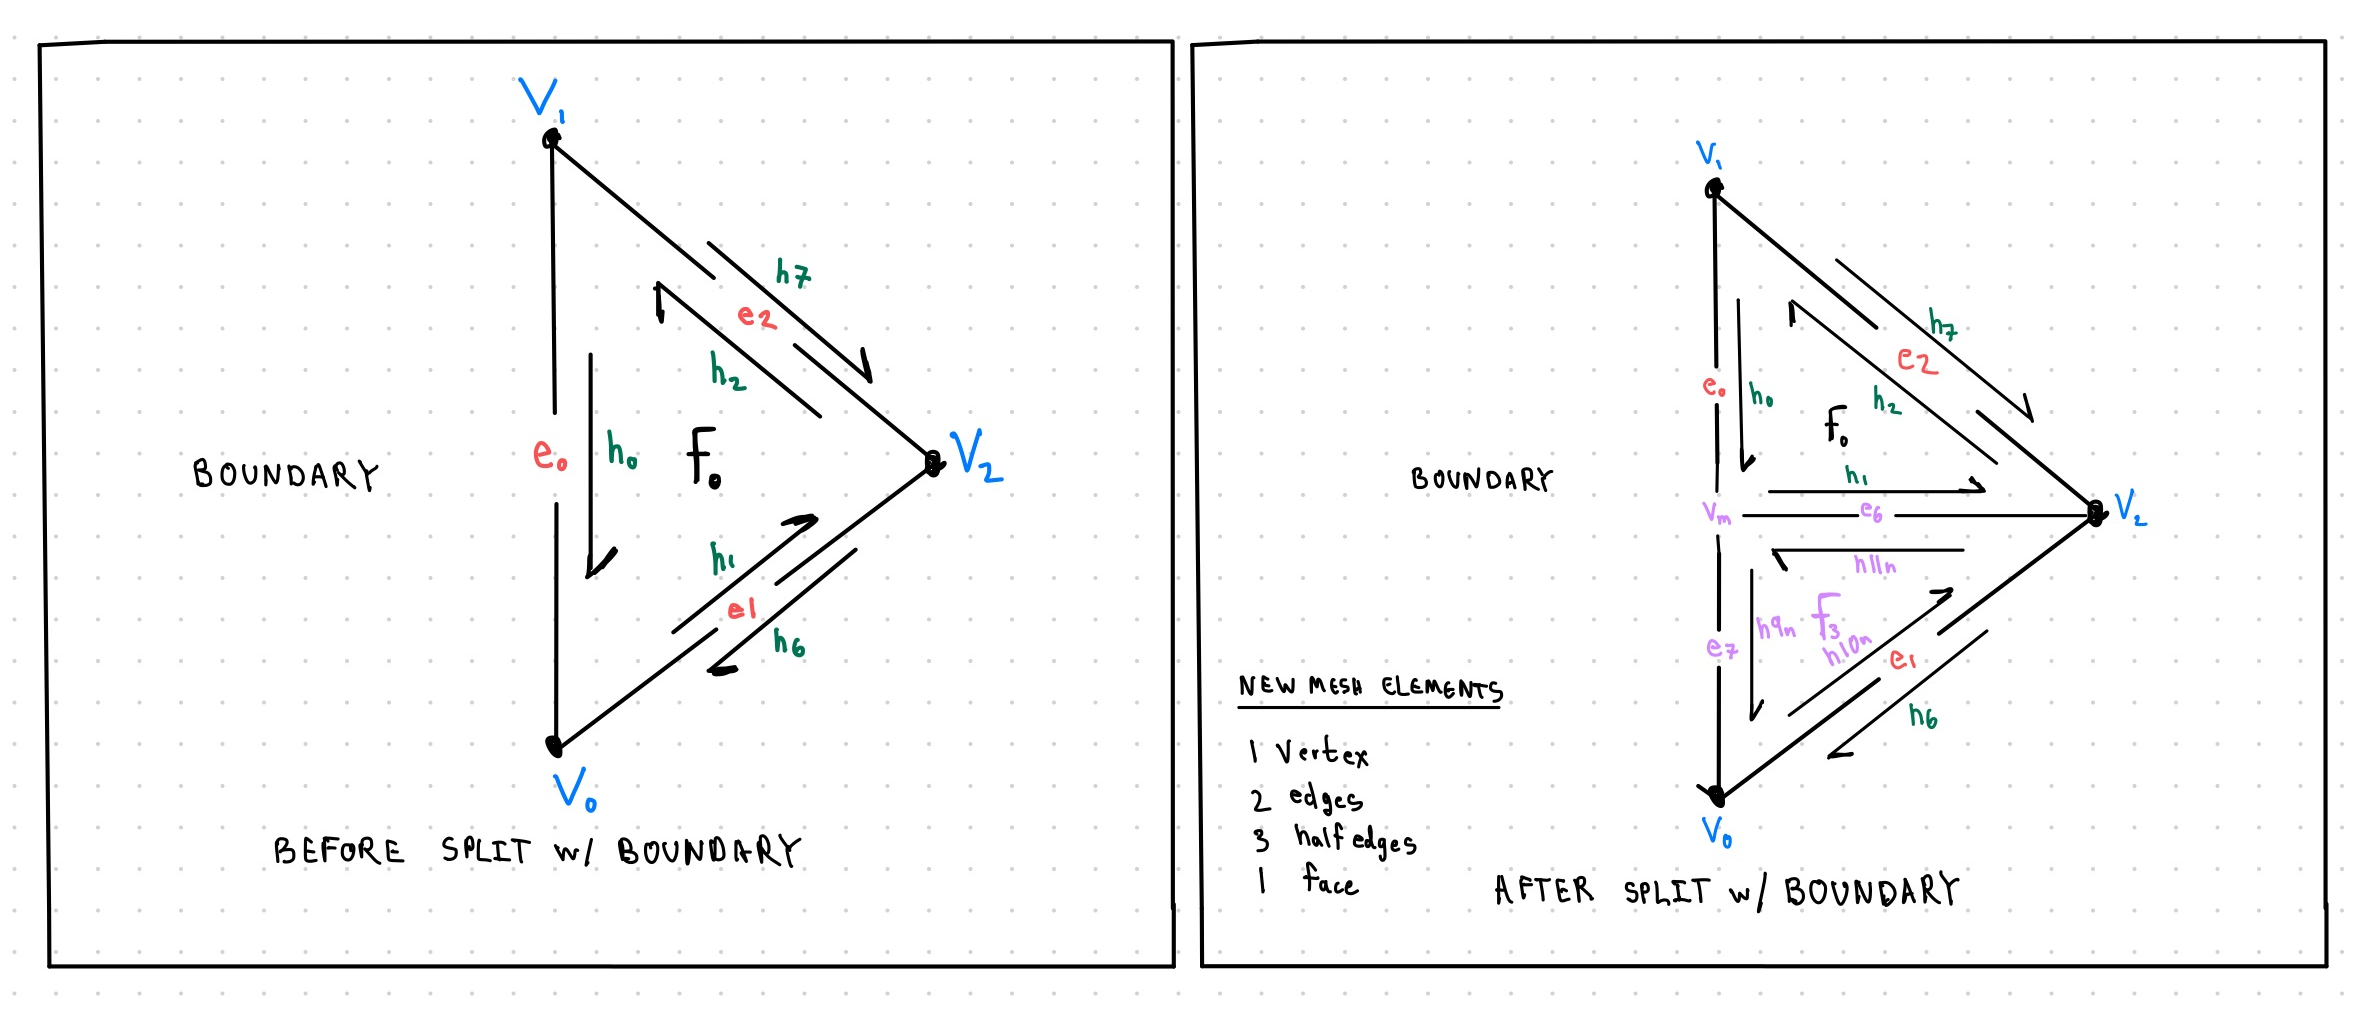 V₁
h7
e2
h₂
V₂
BOUNDARY
e₀
h₀
f₀
h₁
e1
h6
V₀
BEFORE SPLIT w/ BOUNDARY
V₁
h7
e2
e₀
h₀
h₂
f₀
BOUNDARY
h₁
Vm
e6
V₂
h11n
h9n
f₃
e7
h10n
e₁
h6
NEW MESH ELEMENTS
1 Vertex
2 edges
3 halfedges
1 face
V₀
AFTER SPLIT w/ BOUNDARY